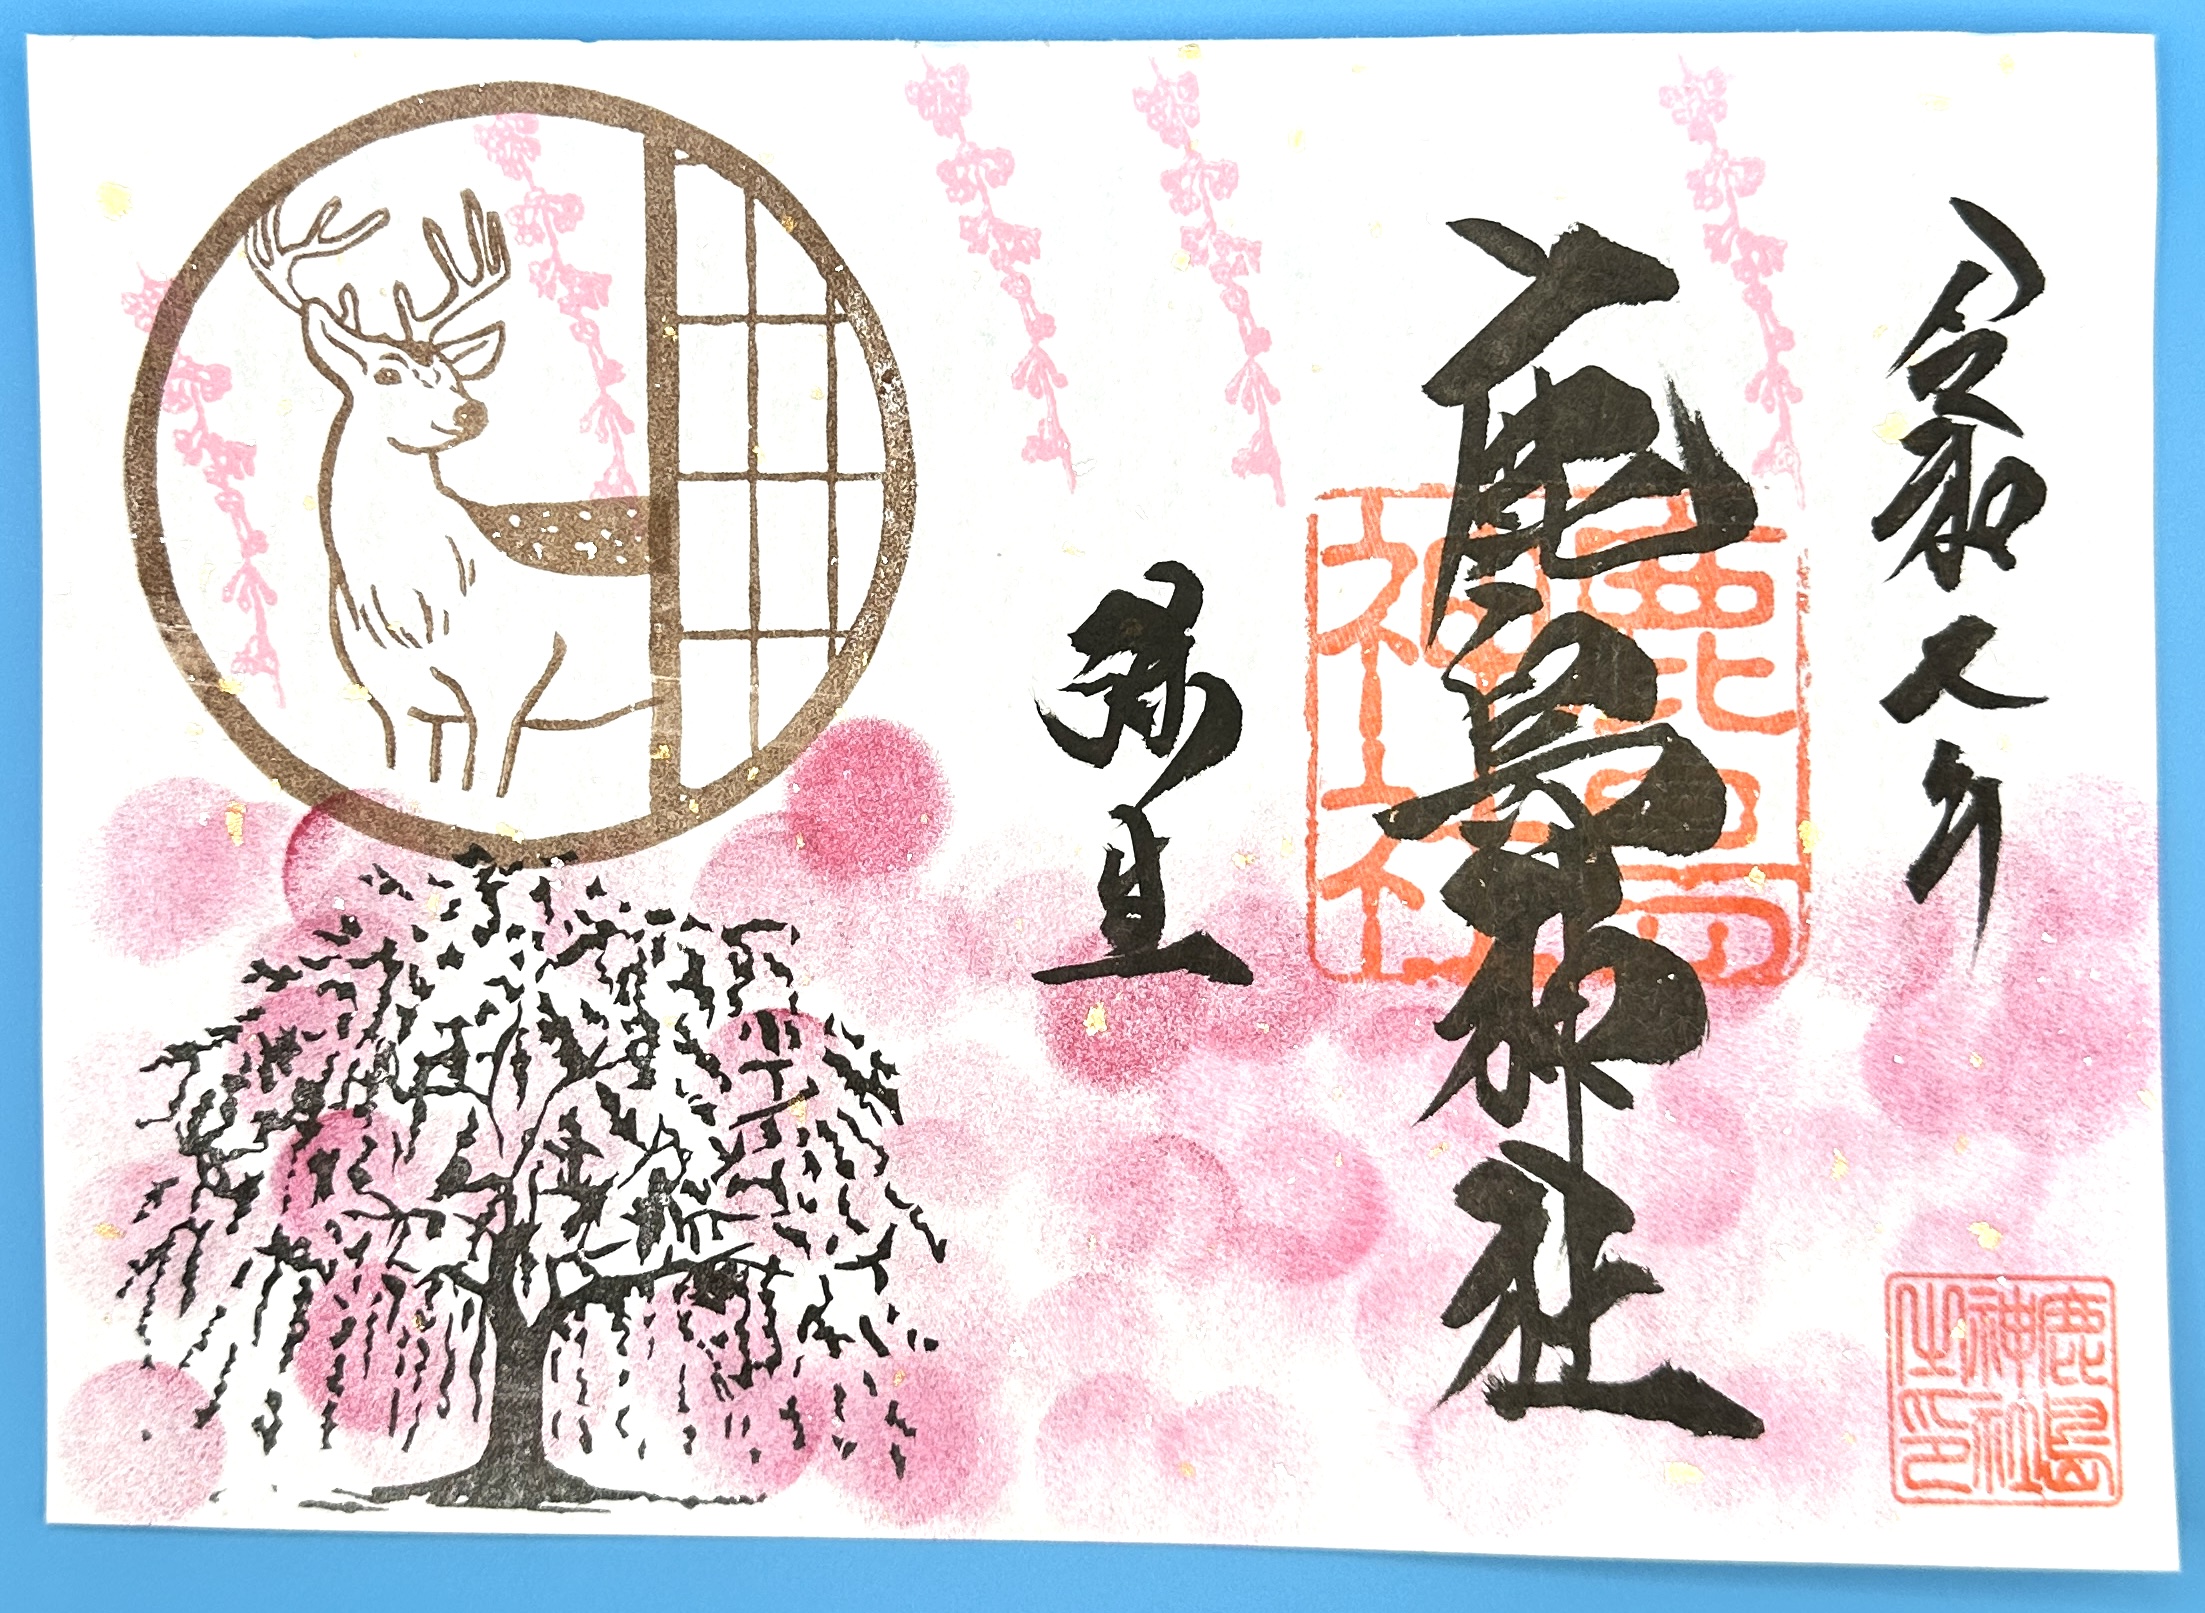 令和 年
鹿島神社
鹿島神社
弥生
鹿島神社之印